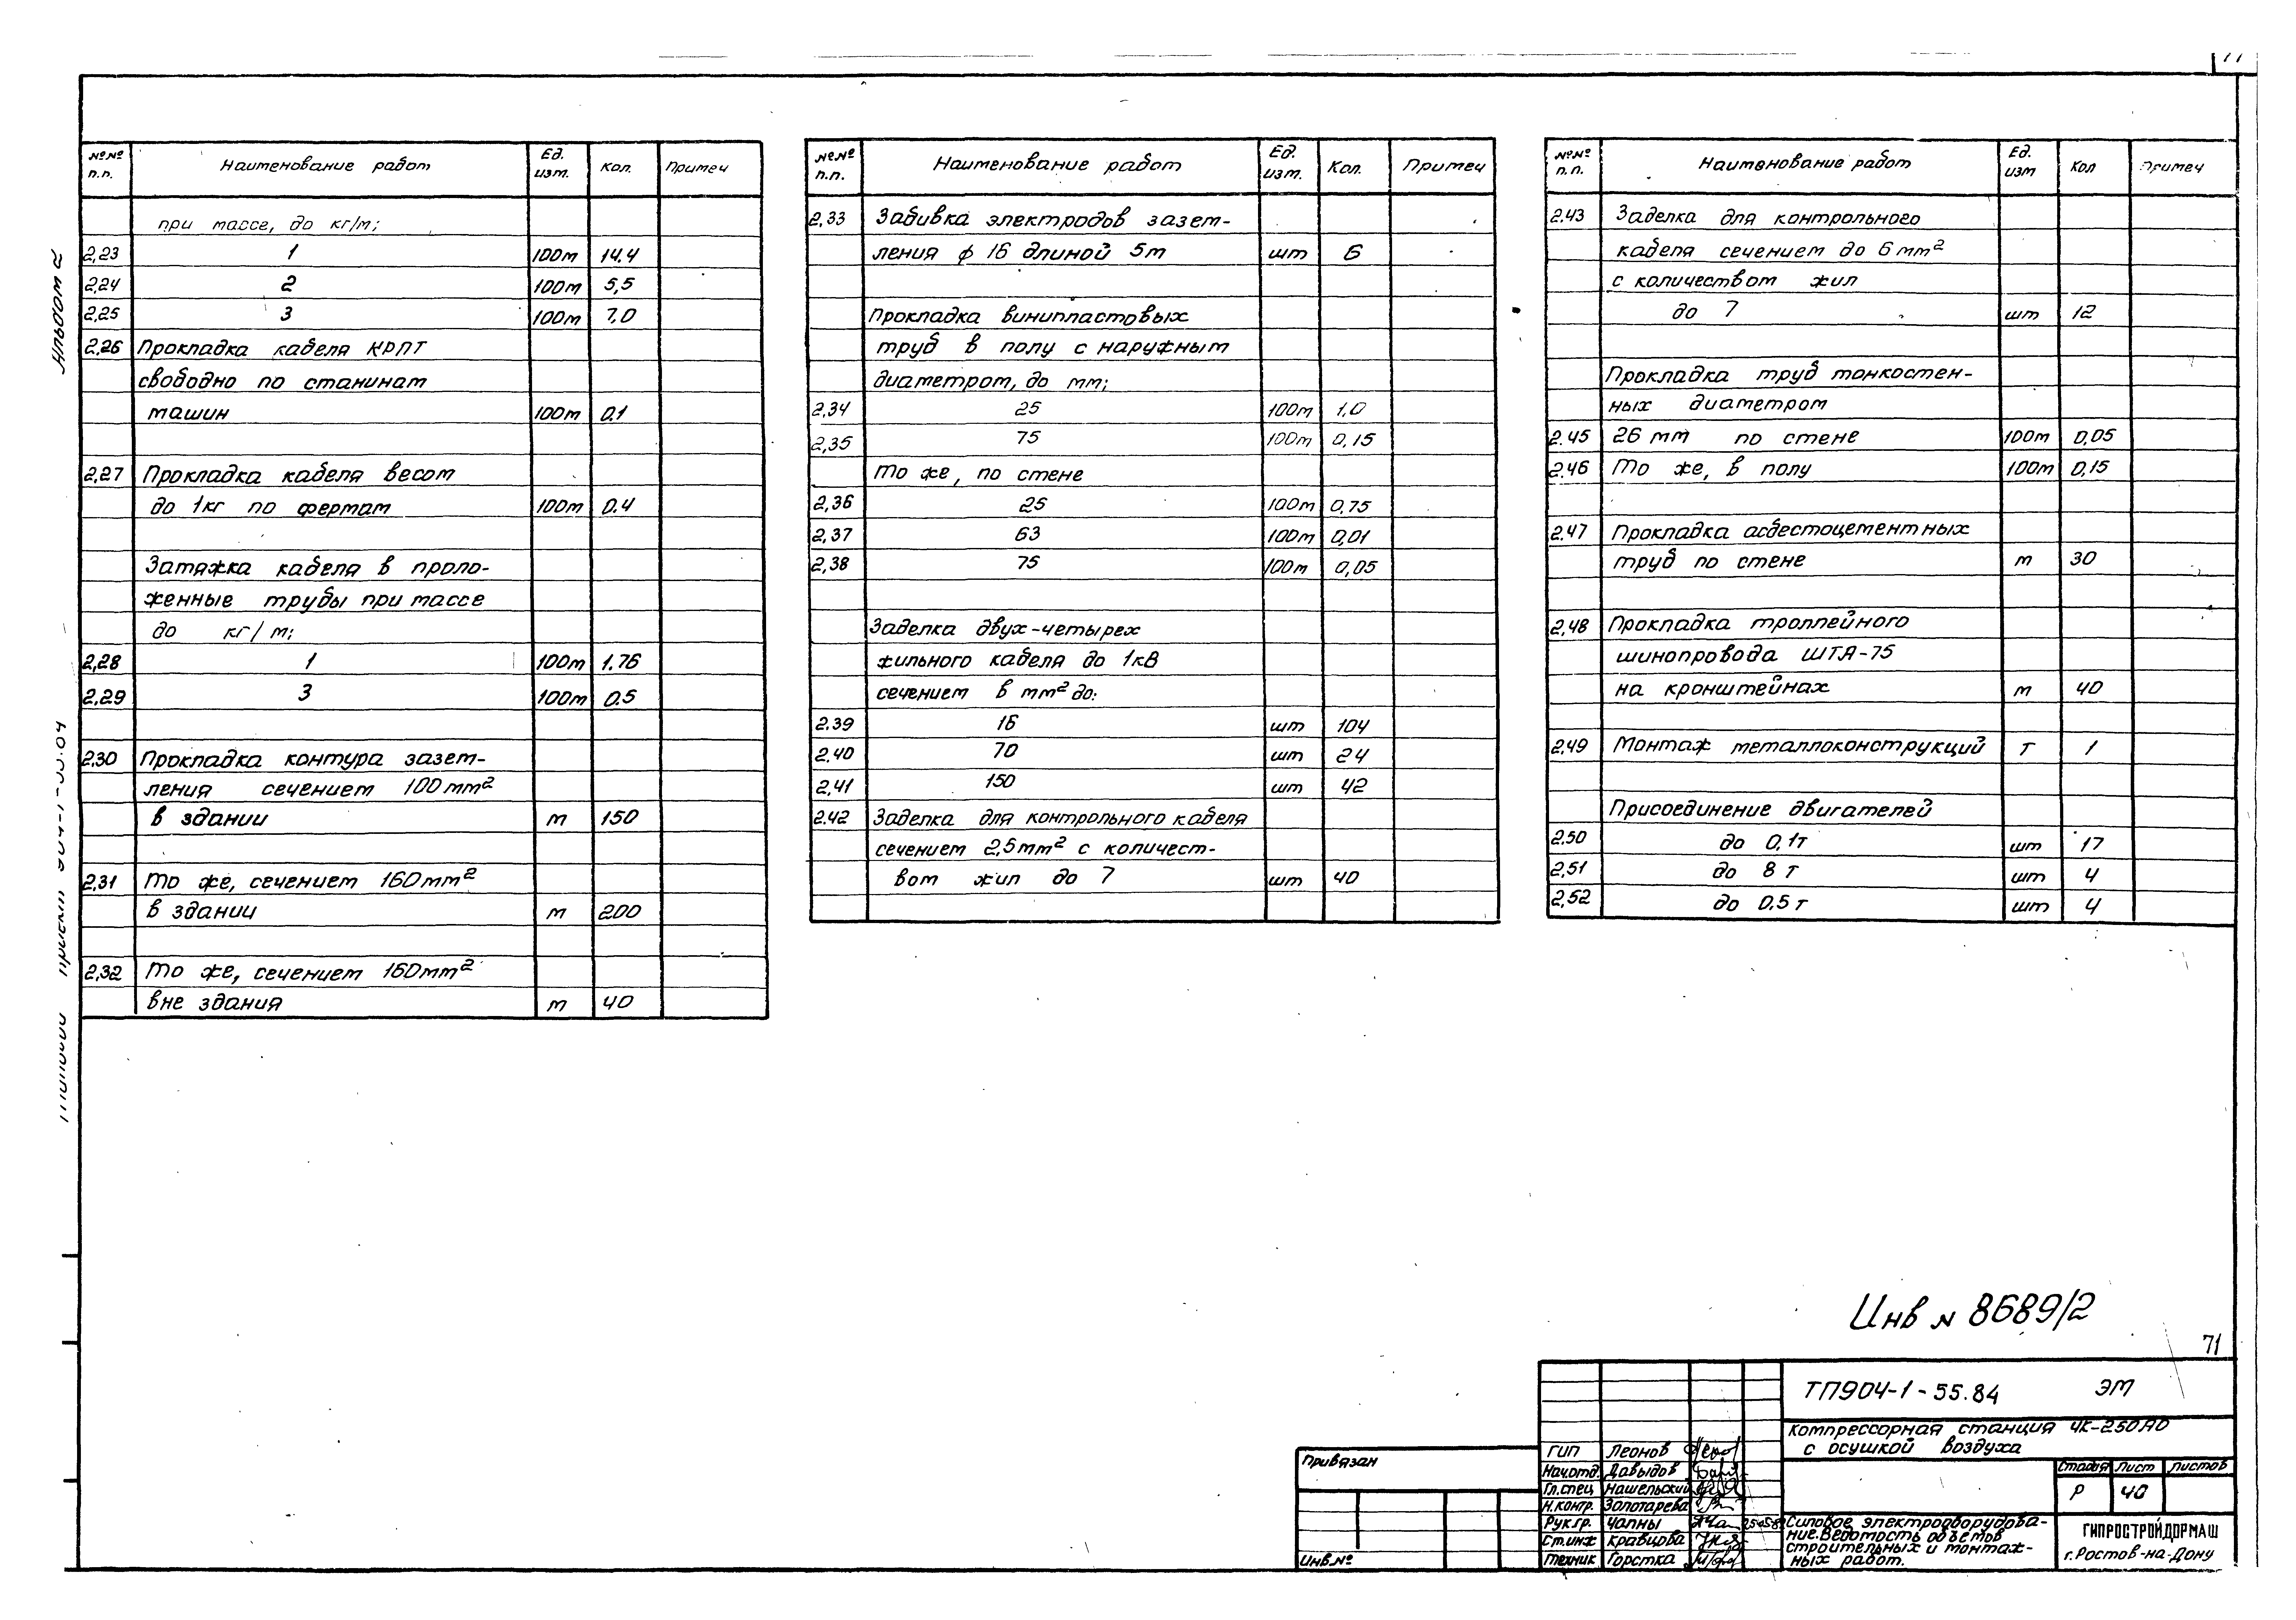 №№ п.п. Наименование работ Ед. изм. Кол. Примеч
при массе, до кг/м;
2,23 1 100м 14,4
2,24 2 100м 5,5
2,25 3 100м 7,0
2,26 Прокладка кабеля КРПТ
свободно по станинам
машин 100м 0,1
2,27 Прокладка кабеля весом
до 1кг по фермам 100м 0,4
Затяжка кабеля в проло-
женные трубы при массе
до кг/м;
2,28 1 100м 1,76
2,29 3 100м 0,5
2,30 Прокладка контура зазем-
ления сечением 100мм²
в здании м 150
2,31 То же, сечением 160мм²
в здании м 200
2,32 То же, сечением 160мм²
вне здания м 40
№№ п.п. Наименование работ Ед. изм. Кол. Примеч
2,33 Забивка электродов зазем-
ления ф 16 длиной 5м шт 6
Прокладка винипластовых
труб в полу с наружным
диаметром, до мм;
2,34 25 100м 1,0
2,35 75 100м 0,15
То же, по стене
2,36 25 100м 0,75
2,37 63 100м 0,01
2,38 75 100м 0,05
Заделка двух-четырех
жильного кабеля до 1кВ
сечением в мм² до:
2.39 16 шт 104
2.40 70 шт 24
2,41 150 шт 42
2.42 Заделка для контрольного кабеля
сечением 2,5мм² с количест-
вом жил до 7 шт 40
№№ п.п. Наименование работ Ед. изм Кол Примеч
2.43 Заделка для контрольного
кабеля сечением до 6мм²
с количеством жил
до 7 шт 12
Прокладка труб тонкостен-
ных диаметром
2.45 26 мм по стене 100м 0,05
2.46 То же, в полу 100м 0,15
2.47 Прокладка асбестоцементных
труб по стене м 30
2.48 Прокладка троллейного
шинопровода ШТА-75
на кронштейнах м 40
2.49 Монтаж металлоконструкций т 1
Присоединение двигателей
2.50 до 0,1т шт 17
2,51 до 8 т шт 4
2,52 до 0,5 т шт 4
Альбом 2
Инв № 8689/2
71
ТП904-1-55.84 ЭМ
Компрессорная станция 4К-250А0
с осушкой воздуха
Стадия Лист Листов
Р 40
Силовое электрооборудова-
ние. Ведомость объемов
строительных и монтаж-
ных работ.
ГИПРОСТРОЙДОРМАШ
г. Ростов-на-Дону
ГИП Леонов
Нач.отд. Давыдов
Гл.спец Нашельский
Н.контр. Золотарева
Рук.гр. Чалны
Ст.инж Кравцова
Техник Горстка
Привязан
Инв.№